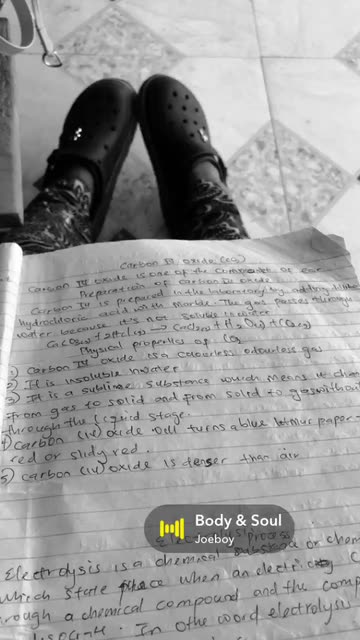 Carbon IV oxide (CO2)
Carbon IV oxide is one of the component of air
Preparation of Carbon IV oxide
Carbon IV is prepared in the laboratory by adding dilute
hydrochloric acid with marble. The gas passes through
water because it's not soluble in water
Physical properties of CO2
1) Carbon IV oxide is a colourless odourless gas
2) It is insoluble in water
3) It is a sublime substance which means it
from gas to solid and from solid to gas without
through the liquid stage.
4) Carbon (IV) oxide turns a blue litmus paper
red or slidy red.
5) Carbon (IV) oxide is denser than air
Body & Soul
Joeboy
Electrolysis is a chemical or chem
which state when an electricity
rough a chemical compound and the comp
In other word electrolysis